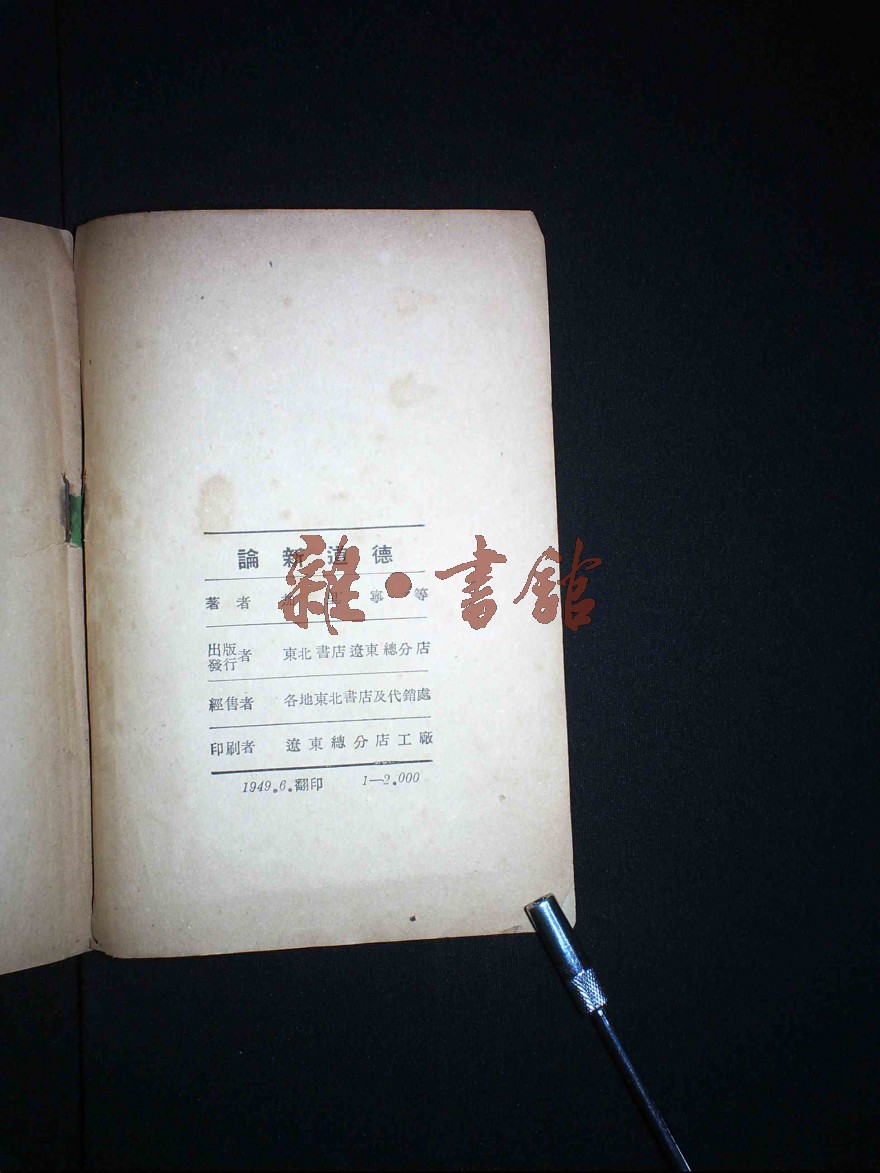 論新道德
著者 寧等
出版發行者 東北書店遼東總分店
經售者 各地東北書店及代銷處
印刷者 遼東總分店工廠
1949.6.翻印 1—2.000
雜·書館